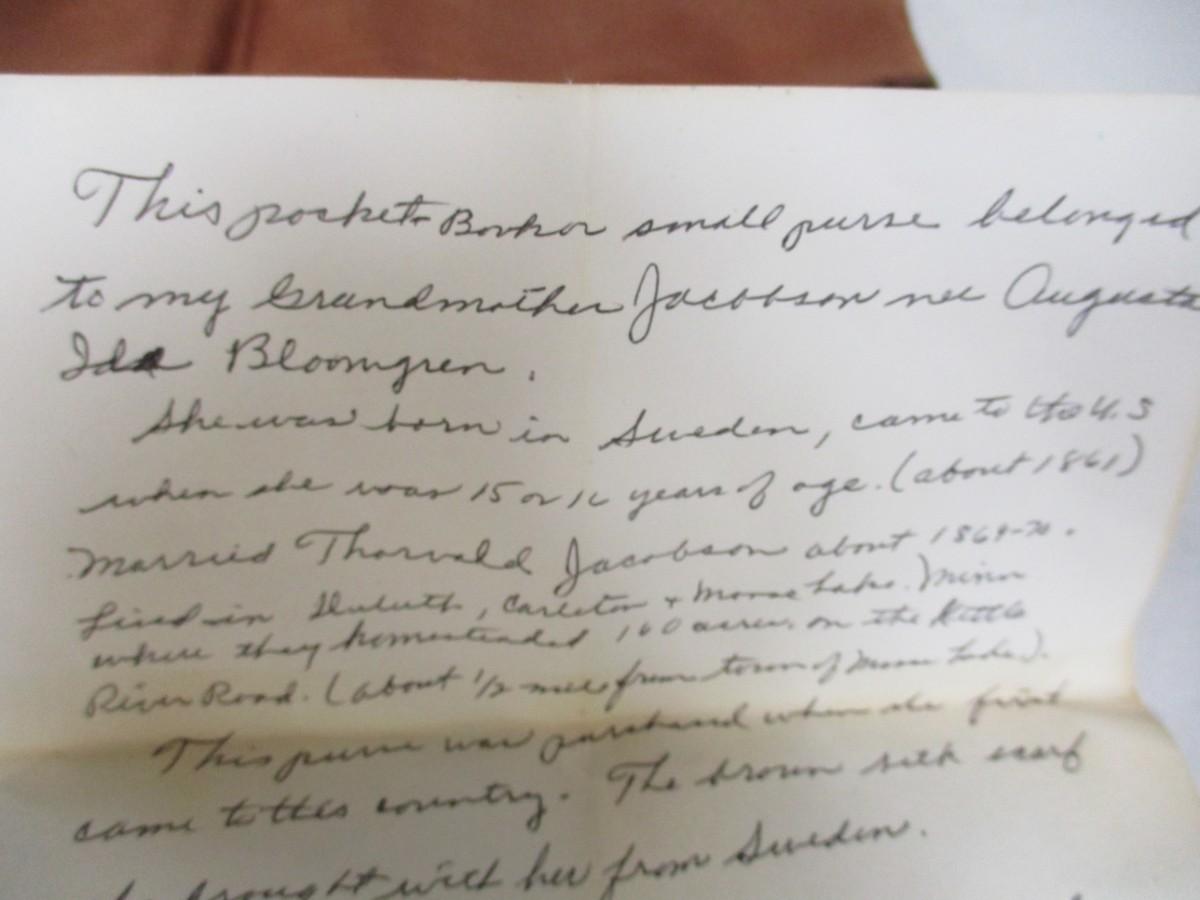 This pocket-Book or small purse belonged
to my Grandmother Jacobson nee Augusta
Ida Bloomgren.
She was born in Sweden, came to the U.S
when she was 15 or 16 years of age. (about 1861)
Married Thorvald Jacobson about 1869-70.
Lived in Duluth, Carleton + Moose Lake. Minn
where they homesteaded 160 acres. on the Kettle
River Road. (about 1/2 mile from town of Moose Lake).
This purse was purchased when she first
came to this country. The brown silk scarf
brought with her from Sweden.